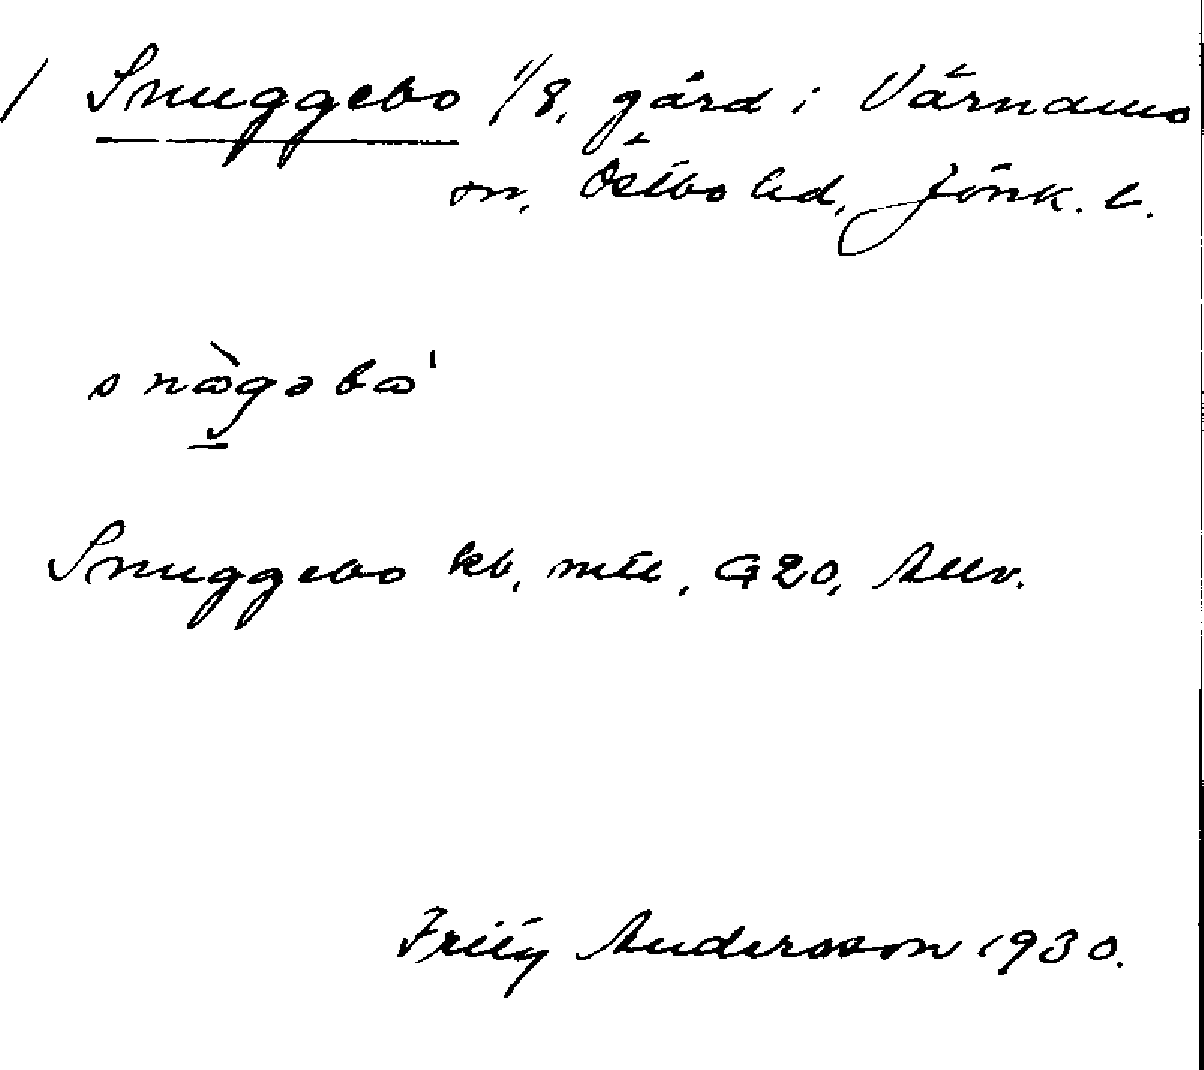 / Snuggebo 1/8, gård i Värnamo
sn, Östbo hd, Jönk. l.
Snuggebo kb, mtl, G20, Allv.
Andersson 1930.